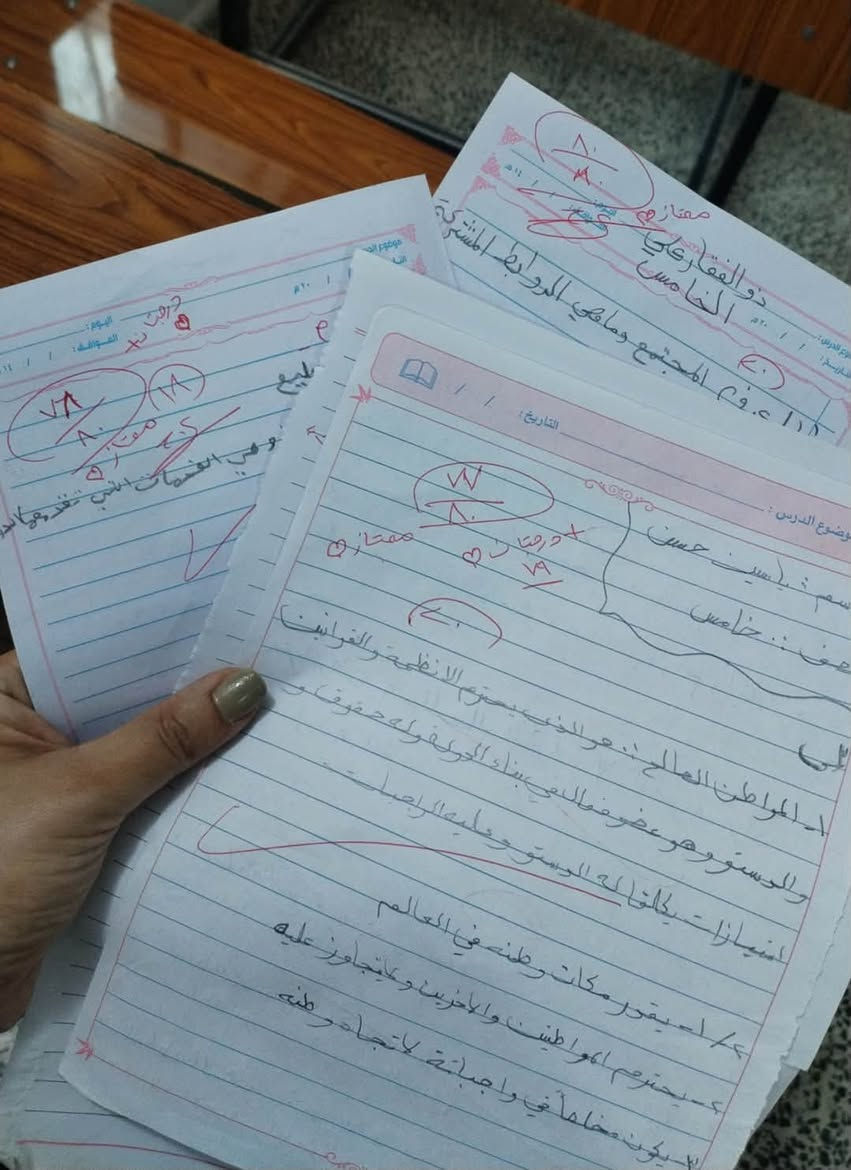 ٨٠
٨٠
ممتاز
ذو الفقار علي
الخامس
٢٠
المجتمع وماهي الروابط المشتركة
موضوع الدرس
اليوم:
الموافق:
درجتان
+
٧٨
٨٠
١٨
ممتاز
وهي الخدمات التي تقدمها
التاريخ:
موضوع الدرس:
٧٧
٨٠
+ درجتان
٧٩
ممتاز
٢٠
سم: ياسين حسن
صف: خامس
١- المواطن الصالح: هو الذي يحترم الانظمة والقوانين
والدستو وهو عضو فعال في بناء الدولة وله حقوق و
امتيازات يكلفها له الدستو وعليه الواجبات
٢/ ١- يقدر مكانت وطنه في العالم
٢- يحترم المواطنين والاخرين
٣- يكون مخلصاً في واجباتة لاتجاه وطنه